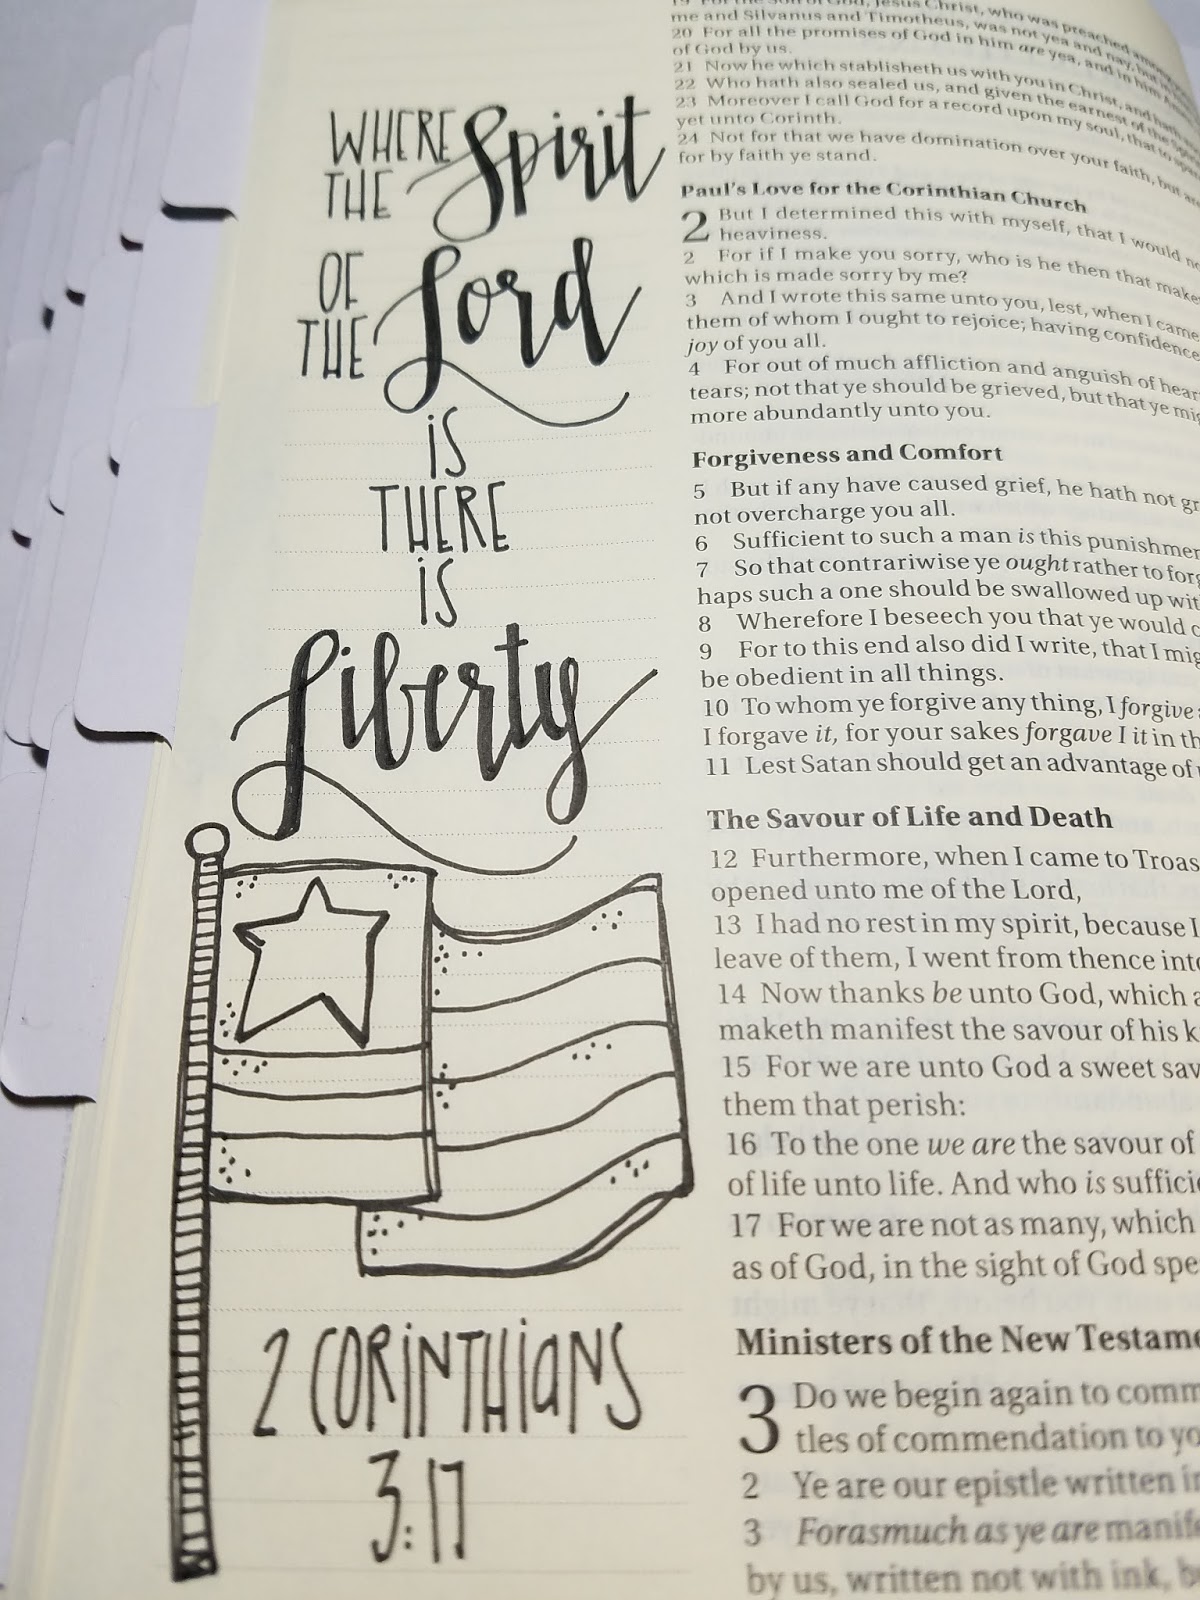 WHERE
THE Spirit
OF
THE Lord
is
THERE
iS
Liberty
2 CORiNTHiaNS
3:17
19 For the Son of God, Jesus Christ, who was preached among
me and Silvanus and Timotheus, was not yea and nay, but
20 For all the promises of God in him are yea, and in him
of God by us.
21 Now he which stablisheth us with you in Christ, and hath
22 Who hath also sealed us, and given the earnest of the
23 Moreover I call God for a record upon my soul, that to
yet unto Corinth.
24 Not for that we have domination over your faith, but
for by faith ye stand.
Paul's Love for the Corinthian Church
2 But I determined this with myself, that I would
heaviness.
2 For if I make you sorry, who is he then that
which is made sorry by me?
3 And I wrote this same unto you, lest, when I came
them of whom I ought to rejoice; having confidence
joy of you all.
4 For out of much affliction and anguish of
tears; not that ye should be grieved, but that ye
more abundantly unto you.
Forgiveness and Comfort
5 But if any have caused grief, he hath not
not overcharge you all.
6 Sufficient to such a man is this
7 So that contrariwise ye ought rather to
haps such a one should be swallowed up
8 Wherefore I beseech you that ye would
9 For to this end also did I write, that I
be obedient in all things.
10 To whom ye forgive any thing, I forgive
I forgave it, for your sakes forgave I it in
11 Lest Satan should get an advantage of
The Savour of Life and Death
12 Furthermore, when I came to Troas
opened unto me of the Lord,
13 I had no rest in my spirit, because I
leave of them, I went from thence
14 Now thanks be unto God, which
maketh manifest the savour of his
15 For we are unto God a sweet
them that perish:
16 To the one we are the savour of
of life unto life. And who is
17 For we are not as many, which
as of God, in the sight of God
Ministers of the New
3 Do we begin again to
tles of commendation to
2 Ye are our epistle written
3 Forasmuch as ye are
by us, written not with ink,